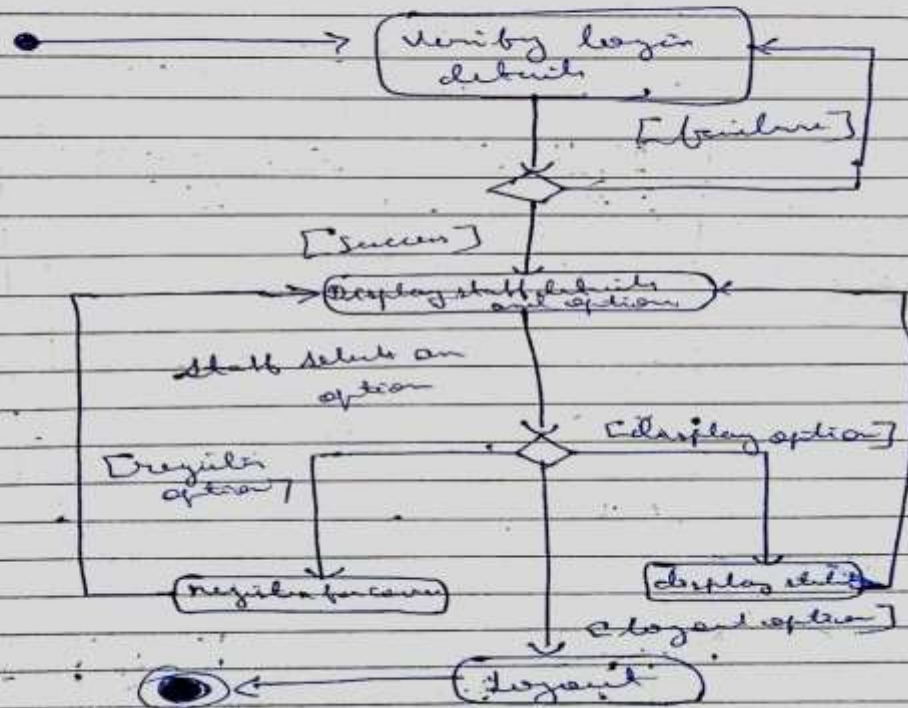 Verify login
details
[failure]
[Success]
Display staff details
and options
Staff selects an
option
[display option]
[register
option]
register for course
display
[logout option]
Logout